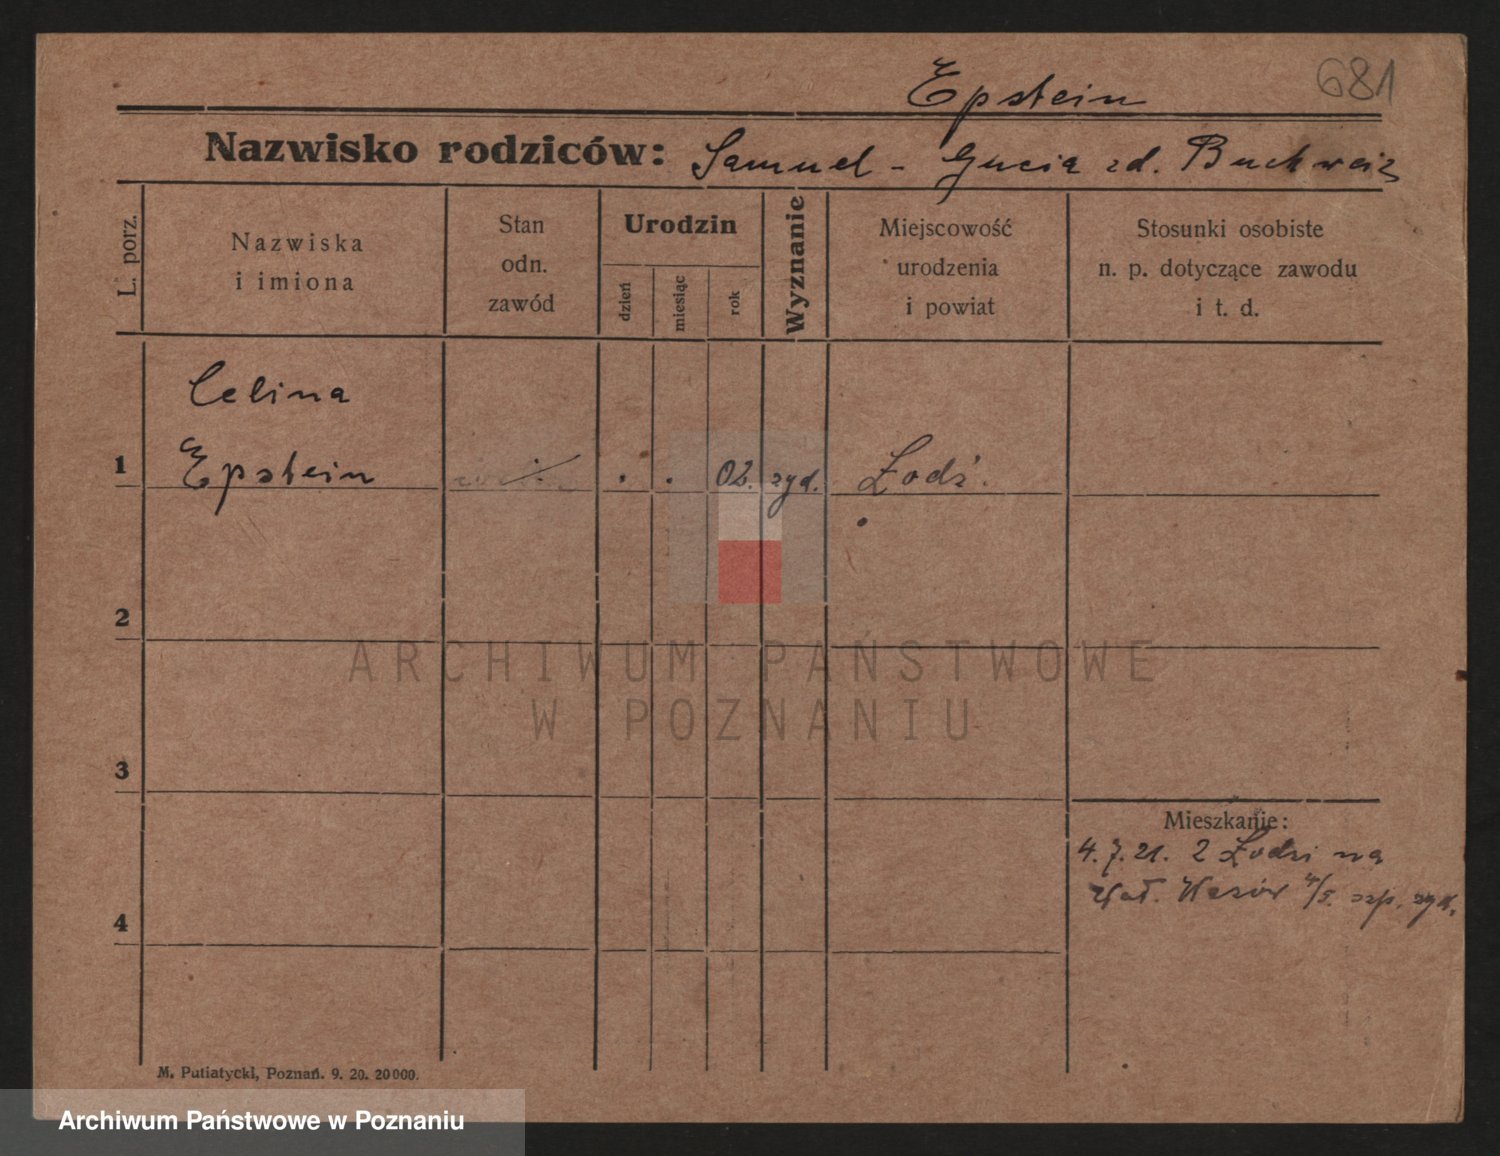 681
Epstein
Nazwisko rodziców: Samuel - Gucia zd. Buchweiz
L. porz.
Nazwiska
i imiona
Stan
odn.
zawód
Urodzin
dzień
miesiąc
rok
Wyznanie
Miejscowość
urodzenia
i powiat
Stosunki osobiste
n. p. dotyczące zawodu
i t. d.
Celina
1 Epstein . . 02. żyd. Łodź.
2
ARCHIWUM PAŃSTWOWE
W POZNANIU
3
Mieszkanie:
4. 7. 21. z Łodzi na
4/5. szp. żyd.
4
M. Putiatycki, Poznań. 9. 20. 20000.
Archiwum Państwowe w Poznaniu